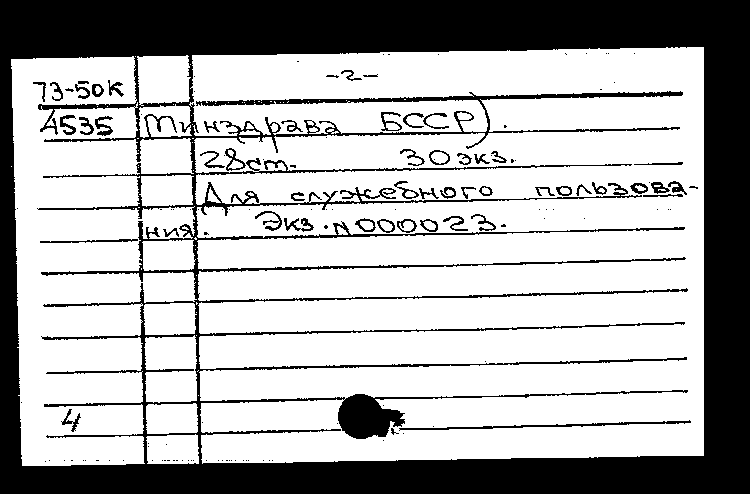 -2-
73-50к
4535 Минздрава БССР).
28 ст. 30 экз.
Для служебного пользова-
ния. Экз. N 000023.
4